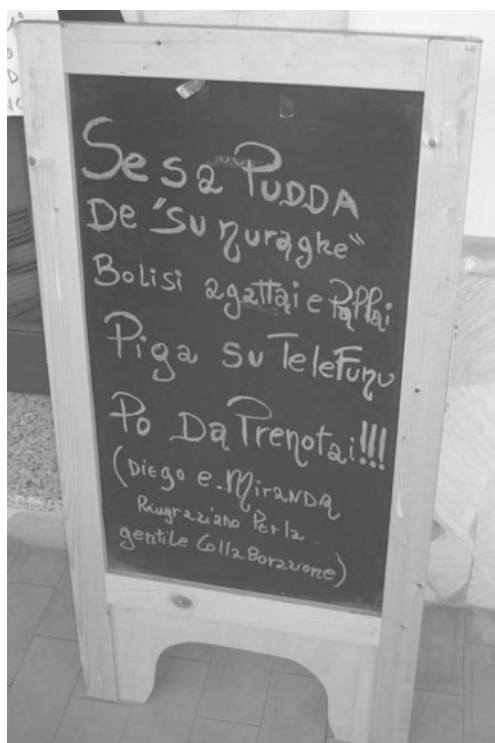 Se sa PUDDA
De "su nuraghe"
Bolisi agattai e Pappai
Piga su TeleFunu
Po Da Prenotai!!!
(Diego e Miranda
Ringraziano Per la
gentile CollaBorazione)